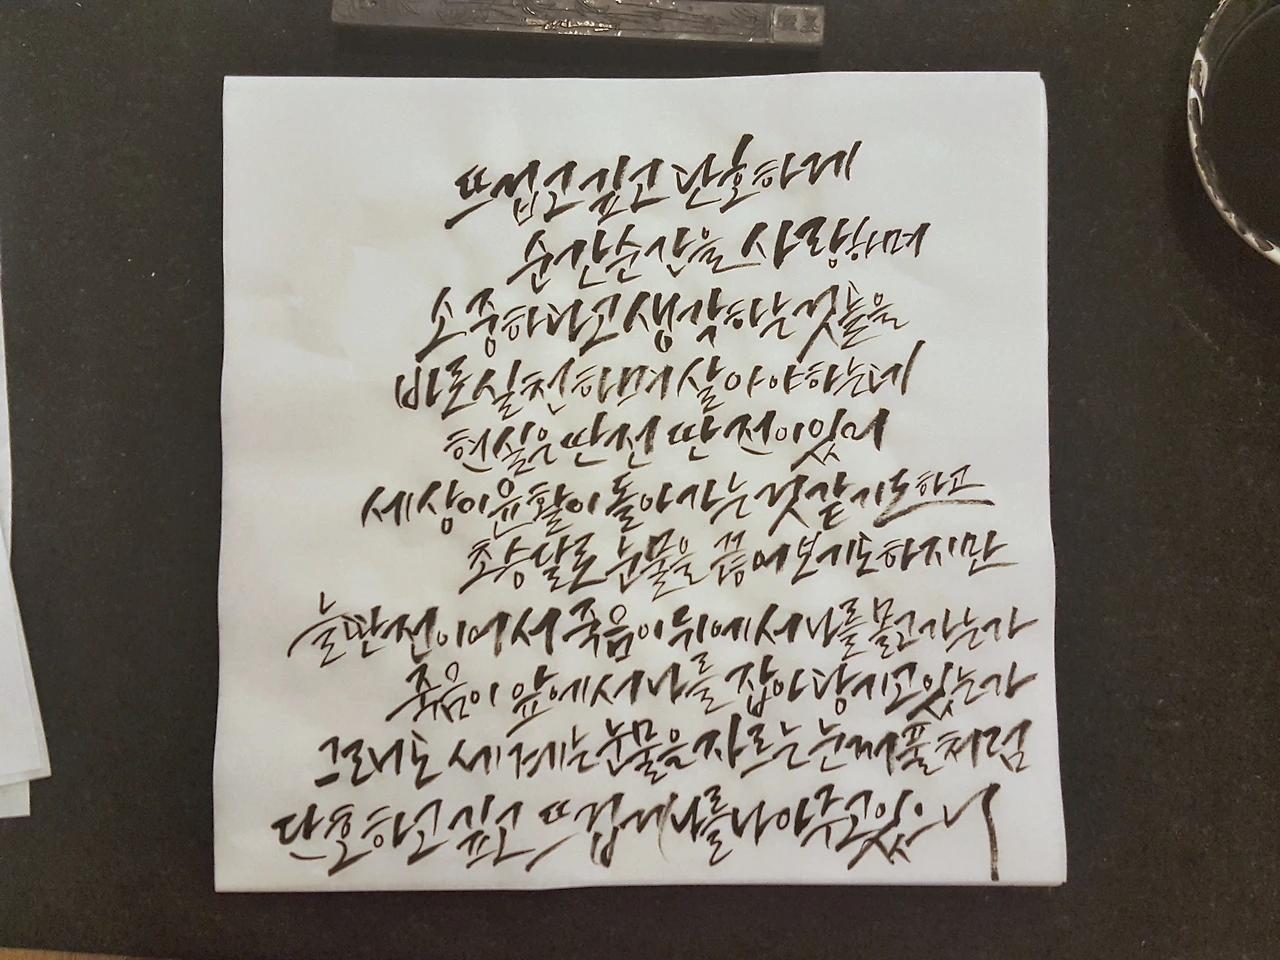 뜨겁고 깊고 단호하게
순간순간을 사랑하며
소중하다고 생각하는 것들을
바로 실천하며 살아야하는데
현실은 딴전 딴전이 있어
세상이 윤활이 돌아가는 것 같기도하고
초승달로 눈물을 끊어보기도하지만
늘 딴전이어서 죽음이 뒤에서 나를 몰고가는가
죽음이 앞에서 나를 잡아당기고있는가
그래도 세계는 눈물을 자르는 눈꺼풀처럼
단호하고 깊고 뜨겁게 나를 낳아주고있으니